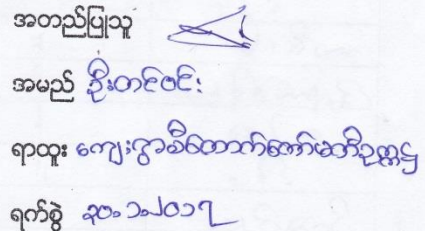 အတည်ပြုသူ
အမည် ဦးတင်ဝင်း
ရာထူး ကျေးရွာမီတောက်ကော်မတီဥက္ကဋ္ဌ
ရက်စွဲ ၃၀.၁.၂၀၁၇